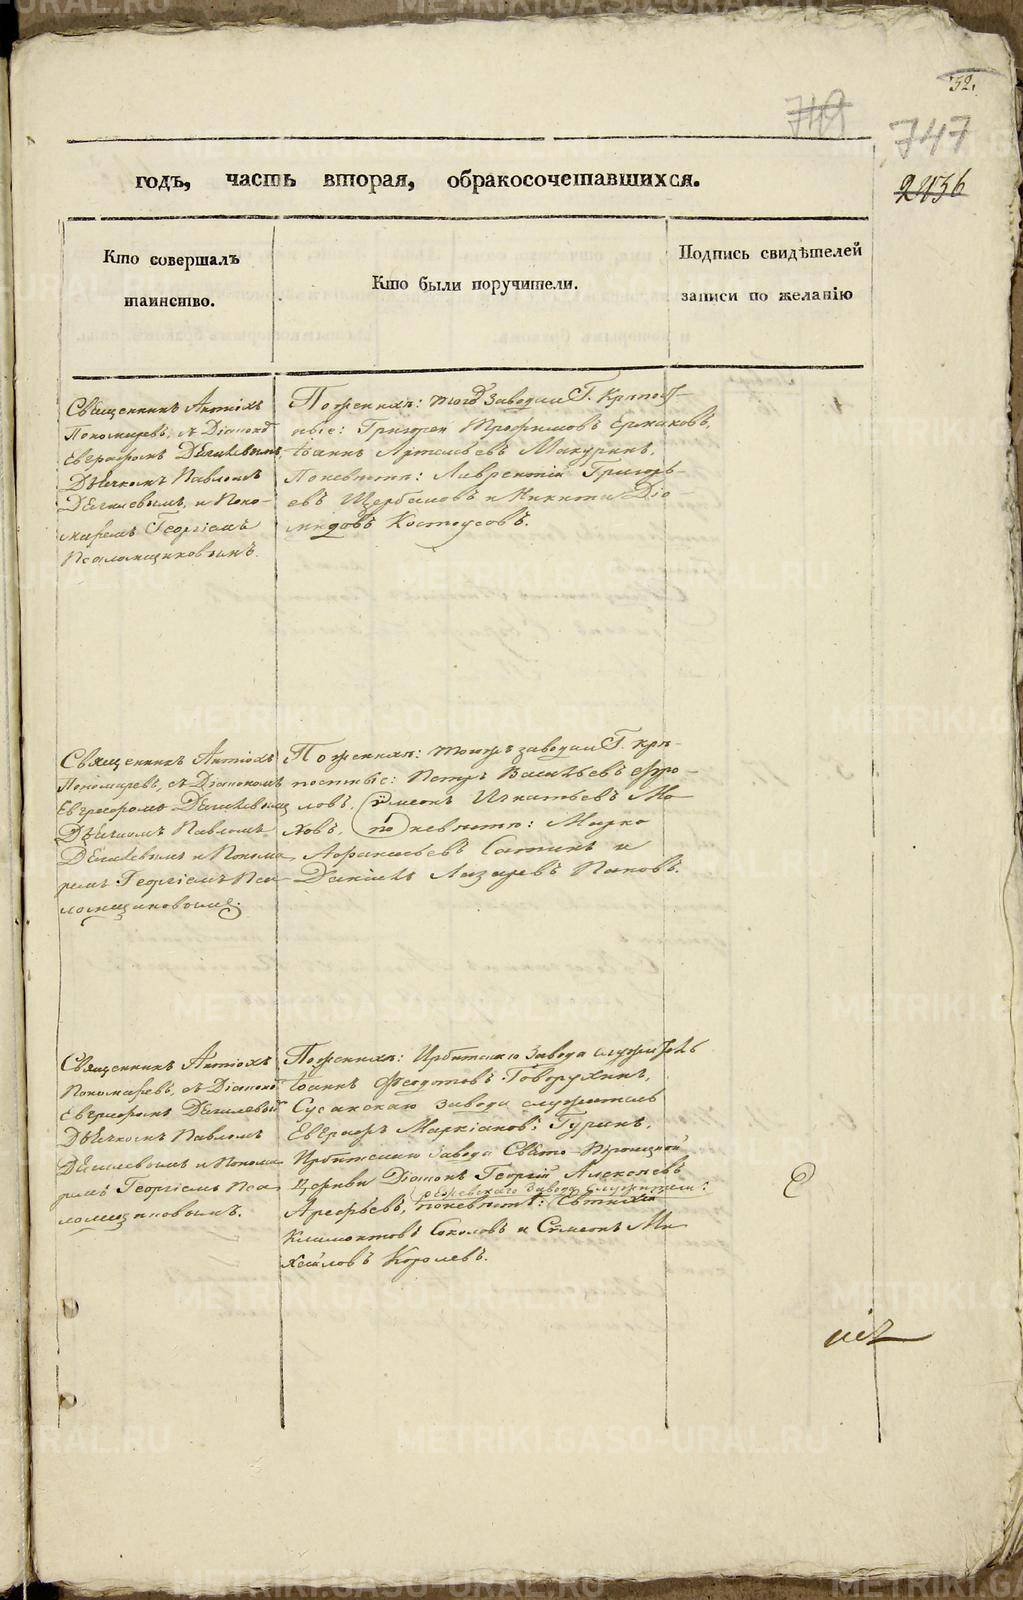 52.
748
747
2436
годъ, часть вторая, обракосочетавшихся.
Кто совершалъ
таинство.
Кто были поручители.
Подпись свидѣтелей
записи по желанію
Священникъ Антіохъ
Пономаревъ, съ Діакономъ
Евграфомъ Дѣгилевымъ,
Дьячкомъ Павломъ
Дѣгилевымъ, и Поно-
маремъ Георгіемъ
Псаломщиковымъ.
По женихѣ: того Завода Г. Крѣпост-
ные: Григорей Трофимовъ Ермаковъ,
Іоаннъ Артемьевъ Макуринъ,
По невѣстѣ: Лаврентій Григорь-
евъ Щербаковъ и Никита Діо-
мидовъ Костоусовъ.
Священникъ Антіохъ
Пономаревъ, съ Діакономъ
Евграфомъ Дѣгилевымъ
Дьячкомъ Павломъ
Дѣгилевымъ и Понома
ремъ Георгіемъ Пса-
ломщиковымъ.
По женихѣ: тогожъ завода Г. крѣ-
постные: Петръ Васильевъ Фро-
ловъ, Сумеонъ Игнатьевъ Ма-
ховъ, по невѣстѣ: Марко
Афанасьевъ Сатинъ и
Даніилъ Лазаревъ Пановъ.
Священникъ Антіохъ
Пономаревъ, съ Діакономъ
Евграфомъ Дѣгилевымъ
Дьячкомъ Павломъ
Дѣгилевымъ и Понома
ремъ Георгіемъ Пса
ломщиковымъ.
По женихѣ: Ирбитскаго Завода служитель
Іоаннъ Феодотовъ Говорухинъ,
Сусанскаго завода служитель
Евграфъ Маркіановъ Гуринъ,
Ирбитскаго Завода Свято-Троицкой
Церкви Діаконъ Георгій Алексѣевъ
Режевскаго Завода служители:
Арефьевъ, по невѣстѣ:
Климонтовъ Соколовъ и Сѵмеонъ Ми
хайловъ Королевъ.
METRIKI.GASO-URAL.RU